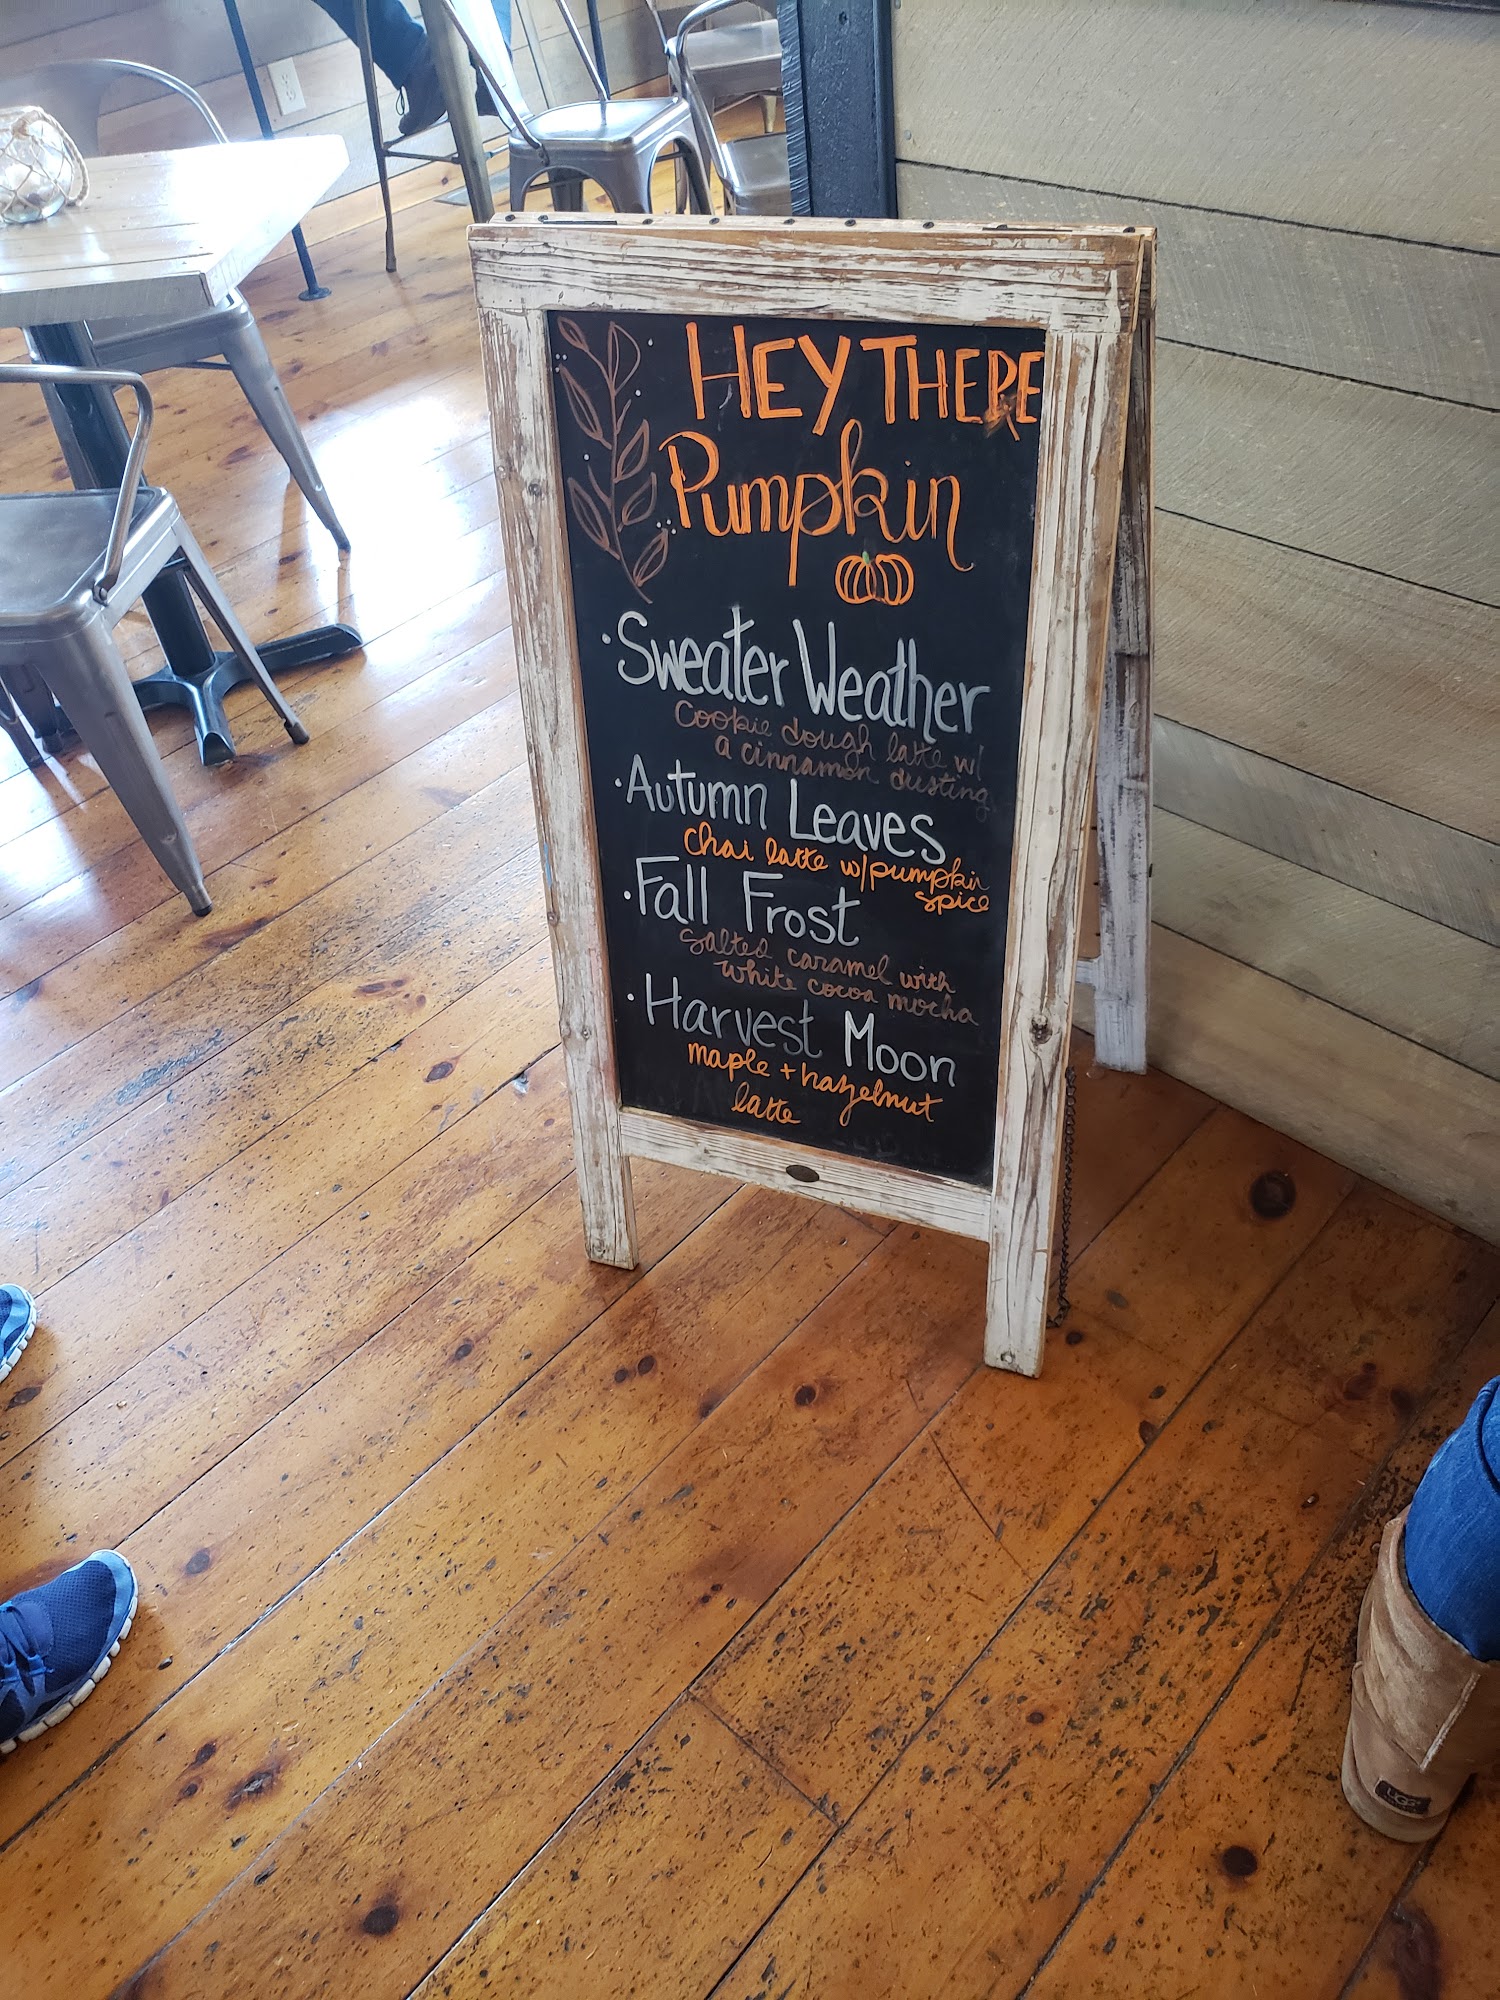 HEY THERE
Pumpkin
• Sweater Weather
Cookie dough latte w/
a cinnamon dusting
• Autumn Leaves
Chai latte w/pumpkin
spice
• Fall Frost
Salted caramel with
white cocoa mocha
• Harvest Moon
maple + hazelnut
latte
UGG